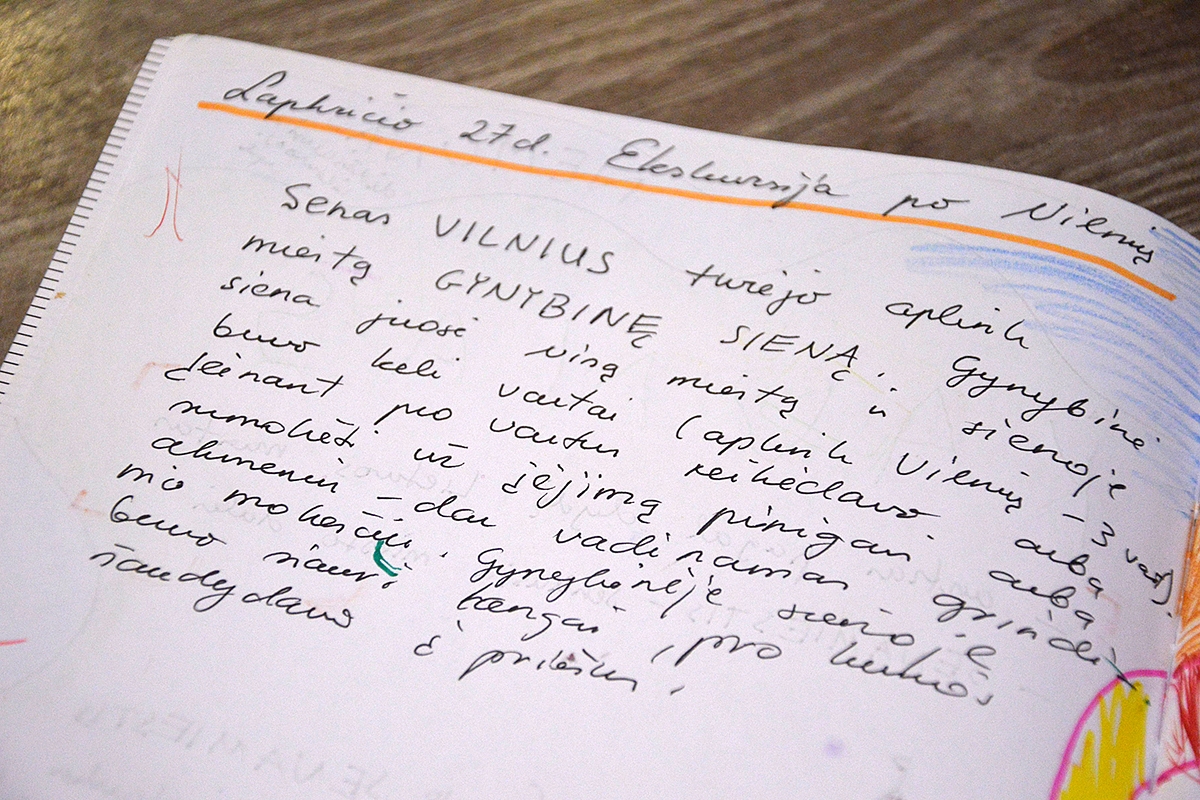 Lapkričio 27d. Ekskursija po Vilnių
Senas VILNIUS turėjo aplink
miestą GYNYBINĘ SIENĄ. Gynybinė
siena juosė visą miestą ir sienoje
buvo keli vartai (aplink Vilnių – 3 vart).
Įeinant pro vartus reikėdavo arba
sumokėti už įėjimą pinigais arba
akmenim – dar vadinamas grindi
nio mokesčiu. Gynybinėje sienoje
buvo siauri langai, pro kuriuos
šaudydavo į priešus.